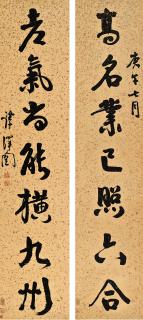 庚午七月
高名業已照六合
老氣尚能橫九州
譚澤闓